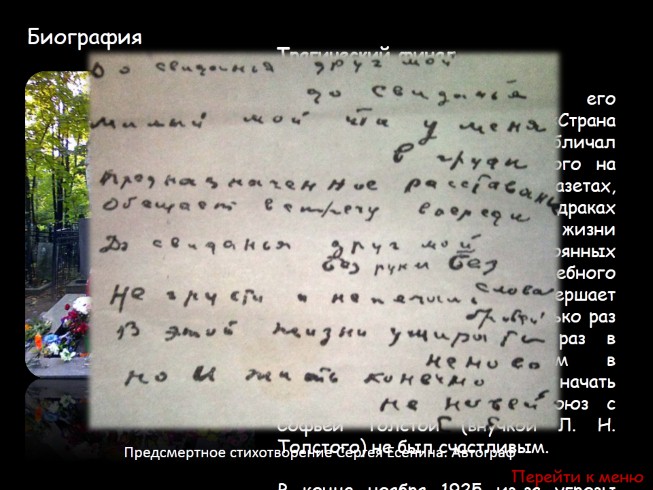 Биография
Трагический финал
До свиданья друг мой
до свиданья
милый мой ты у меня
в груди
Предназначенное расставанье
обещает встречу впереди
До свиданья друг мой
без руки без
слова
Не грусти и не печаль
бровей
В этой жизни умирать
не ново
но и жить конечно
не новей
его
Страна
бличал
ого на
азетах,
драках
жизни
оянных
ебного
ершает
ько раз
раз в
м в
начать
оюз с
Софьей Толстой (внучкой Л. Н.
Толстого) не был счастливым.
Предсмертное стихотворение Сергея Есенина. Автограф
Перейти к меню
В конце ноября 1925 из-за угрозы